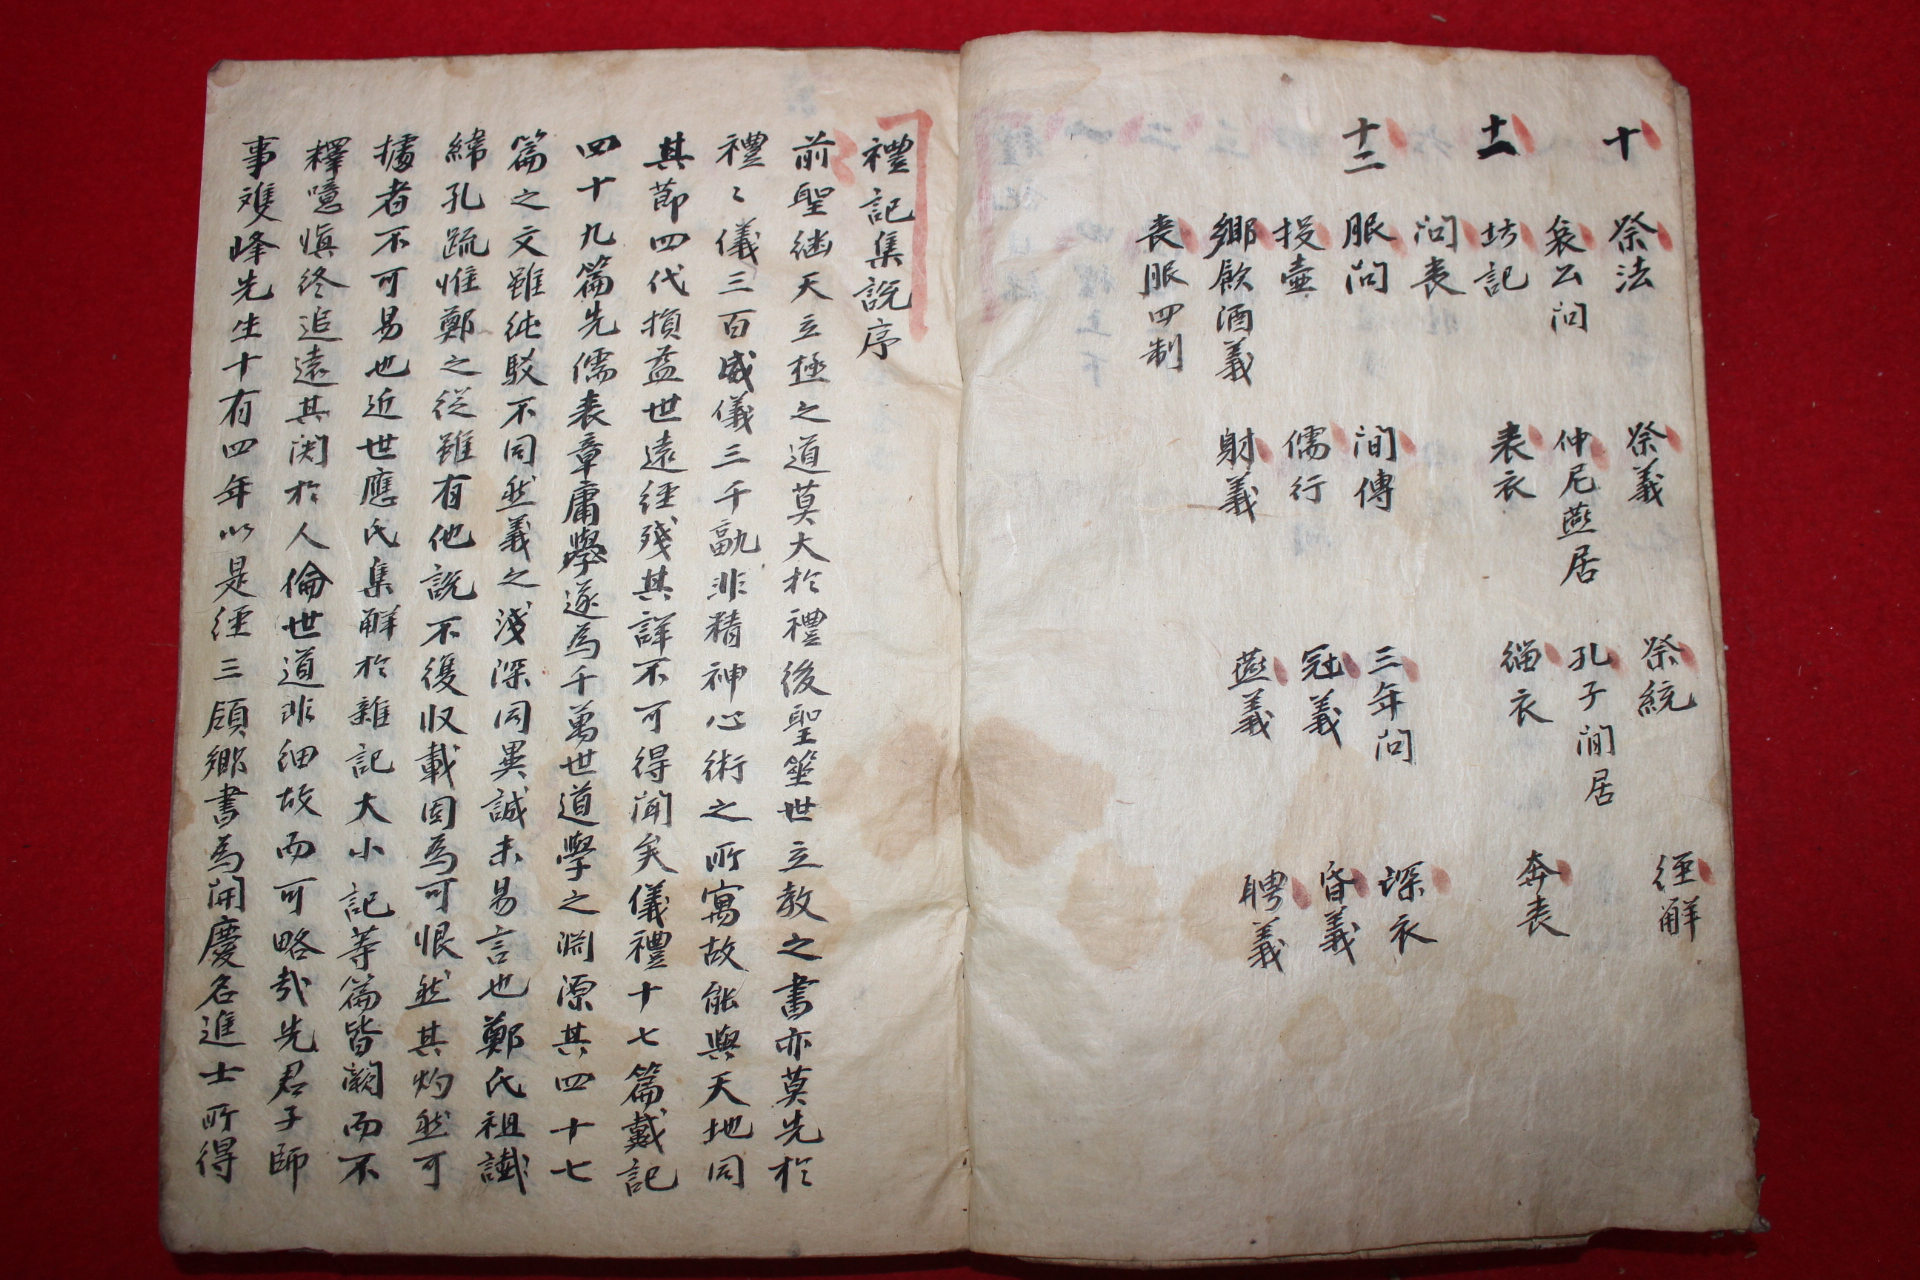 十 祭法 祭義 祭統 經解
哀公問 仲尼燕居 孔子間居
十一 坊記 表衣 緇衣 奔喪
問喪
十二 服問 間傳 三年問 深衣
投壺 儒行 冠義 昏義
鄉飮酒義 射義 燕義 聘義
喪服四制
禮記集說序
前聖継天立極之道莫大於禮後聖筮世立教之書亦莫先於
禮〻儀三百威儀三千孰非精神心術之所寓故能與天地同
其節四代損益世遠經殘其詳不可得聞矣儀禮十七篇戴記
四十九篇先儒表章庸學遂為千萬世道學之淵源其四十七
篇之文雖純駁不同然義之淺深同異誠未易言也鄭氏祖讖
緯孔疏惟鄭之從雖有他說不復収載固為可恨然其灼然可
據者不可易也近世應氏集解於雜記大小記等篇皆闕而不
釋噫愼終追遠其関於人倫世道非細故而可略哉先君子師
事雙峰先生十有四年以是經三領鄉書為開慶名進士所得